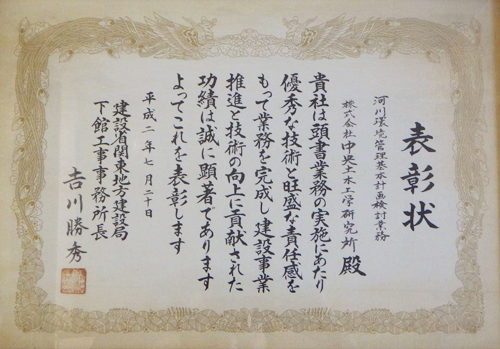 表彰状
河川環境管理基本計画検討業務
株式会社中央土木工学研究所 殿
貴社は頭書業務の実施にあたり
優秀な技術と旺盛な責任感を
もって業務を完成し建設事業
推進と技術の向上に貢献された
功績は誠に顕著であります
よってこれを表彰します
平成二年七月二十日
建設省関東地方建設局
下館工事事務所長
吉川勝秀